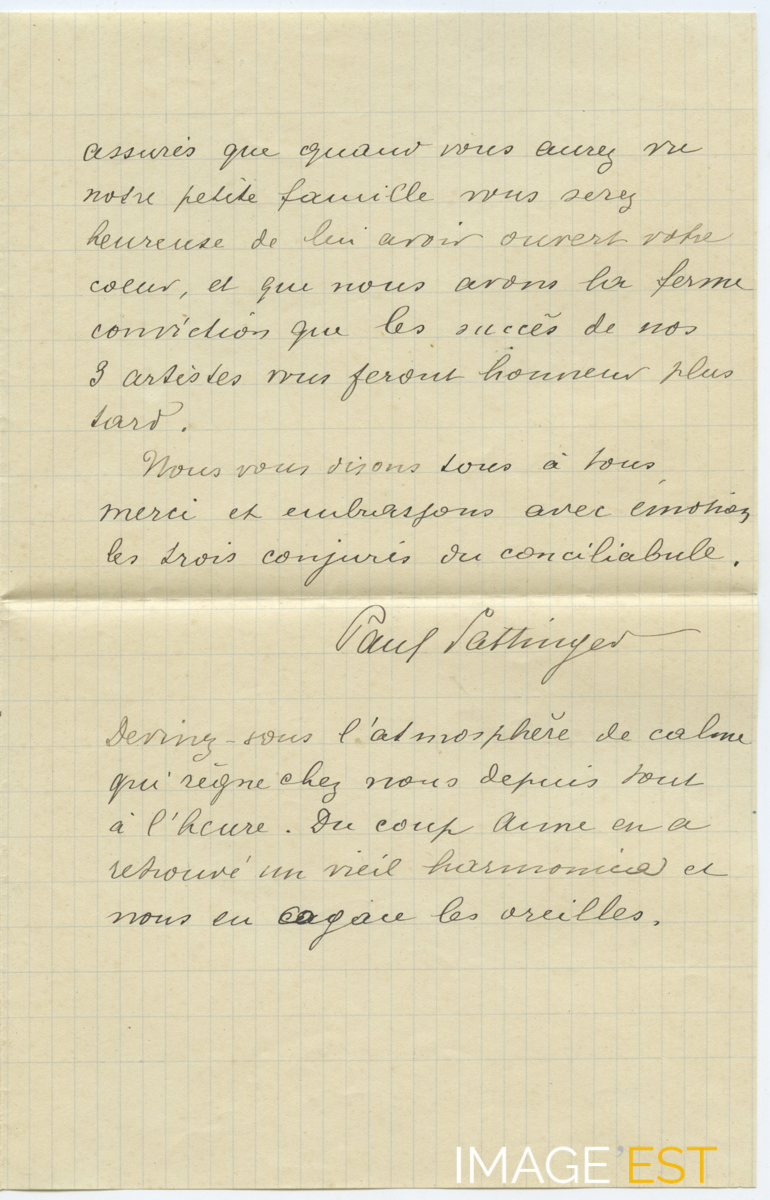 assurés que quand vous aurez vu
notre petite famille vous serez
heureuse de lui avoir ouvert votre
coeur, et que nous avons la ferme
conviction que les succès de nos
3 artistes vous feront honneur plus
tard.
Nous vous disons tous à tous
merci et embrassons avec émotion
les trois conjurés du conciliabule.
Paul
Devinez-vous l'atmosphère de calme
qui règne chez nous depuis tout
à l'heure. Du coup Anne en a
retrouvé un vieil harmonica et
nous en les oreilles.
IMAGE'EST